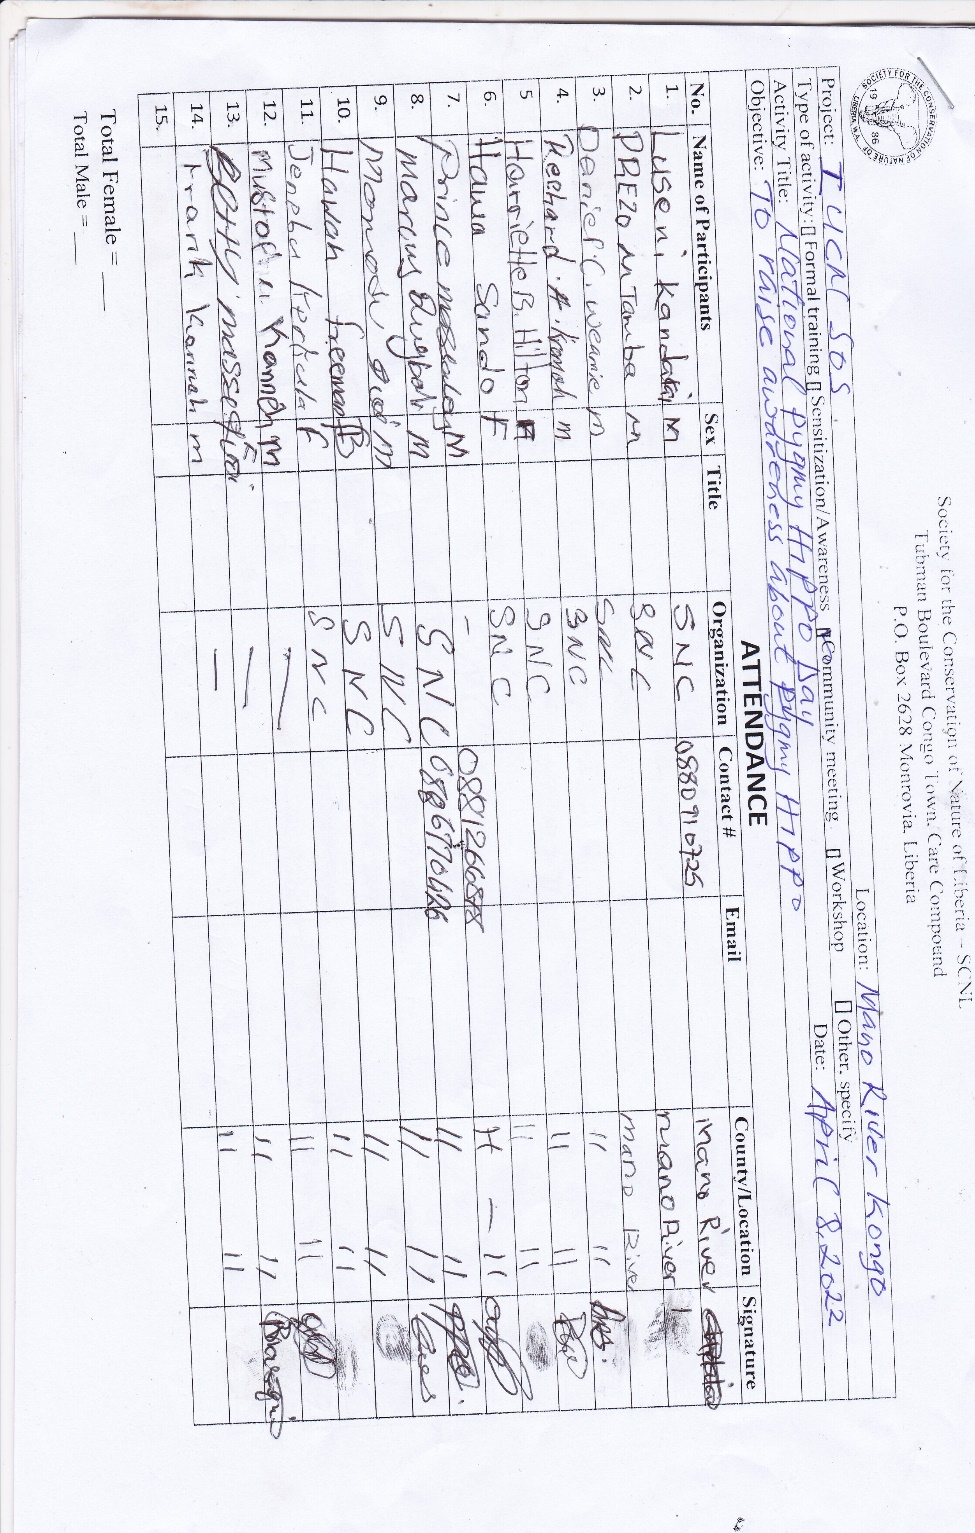 SOCIETY FOR THE CONSERVATION OF NATURE OF LIBERIA
1986
Society for the Conservation of Nature of Liberia – SCNL
Tubman Boulevard Congo Town, Care Compound
P.O. Box 2628 Monrovia, Liberia
Project: IUCN SOS Location: Mano River Kongo
Type of activity: Formal training Sensitization/Awareness Community meeting Workshop Other, specify
Activity Title: National pygmy Hippo Day Date: April 8, 2022
Objective: To raise awareness about pygmy Hippo
ATTENDANCE
No. Name of Participants Sex Title Organization Contact # Email County/Location Signature
1. Luseni Kandakai M SNC 0880910725 mano River
2. PREZO M Tamba M SNC mano River
3. Daniel C. weamie M SNC mano River
4. Rechard A. Kromah M SNC 11 11
5 Harriette B. Hilton F SNC 11 11
6. Hawa Sando F SNC 11 11
7. Prince M - 11 – 11
8. marcus M SNC 11 11
9. Momodu M SNC 11 11
10. Hawah freeman SNC 11 11
11. F SNC 11 11
12. Kanneh M — 11 11
13. Betty massa F — 11 11
14. Frank Kannah M — 11 11
15.
Total Female = ___
Total Male = ___